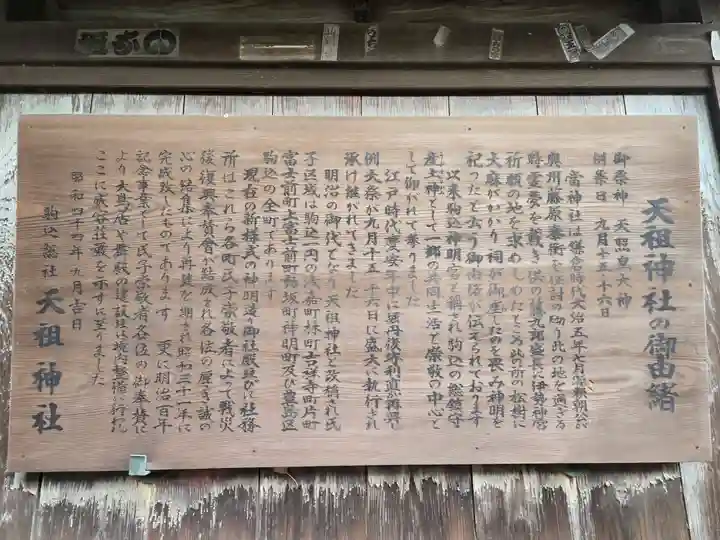 天祖神社の御由緒
御祭神　天照皇大神
例祭日　九月十五・十六日
当神社は鎌倉時代文治五年七月源頼朝公が
奥州藤原泰衡を征討の砌り此の地を過ぎる
時霊夢を戴き供の藤九郎盛長に伊勢神宮
祈願の地を求めしめたところ此所の松樹に
大麻がかゝり祠が御座したのを喜み神明を
祀ったと云う御由緒が伝えられております
以来駒込神明宮と稱され駒込の総鎮守
産土神として一郷の共同生活と崇敬の中心と
して御がれて参りました
江戸時代慶安年中に堀丹後守利直再興
例大祭が九月十五・十六日に盛大に執行され
承け継がれてきました
明治の御代となり天祖神社と改稱され氏
子区域は駒込一円の浅嘉町林町吉祥寺町片町
富士前町上富士前町動坂町神明町及び豊島区
駒込の全町であります
現在の新様式の神明造り御社殿並びに社務
所はこれら各町氏子崇敬者によって戦災
後復興奉賛会が結成され各位の厚き誠の
心の結集により再建を期され昭和三十一年に
完成致したのであります　更に明治百年
記念事業として氏子崇敬者各位の御奉賛に
より大鳥居や舞殿の建設並に境内整備が行われ
ここに威容狂厳を示すに至りました
昭和四十四年九月吉日
駒込総社　天祖神社